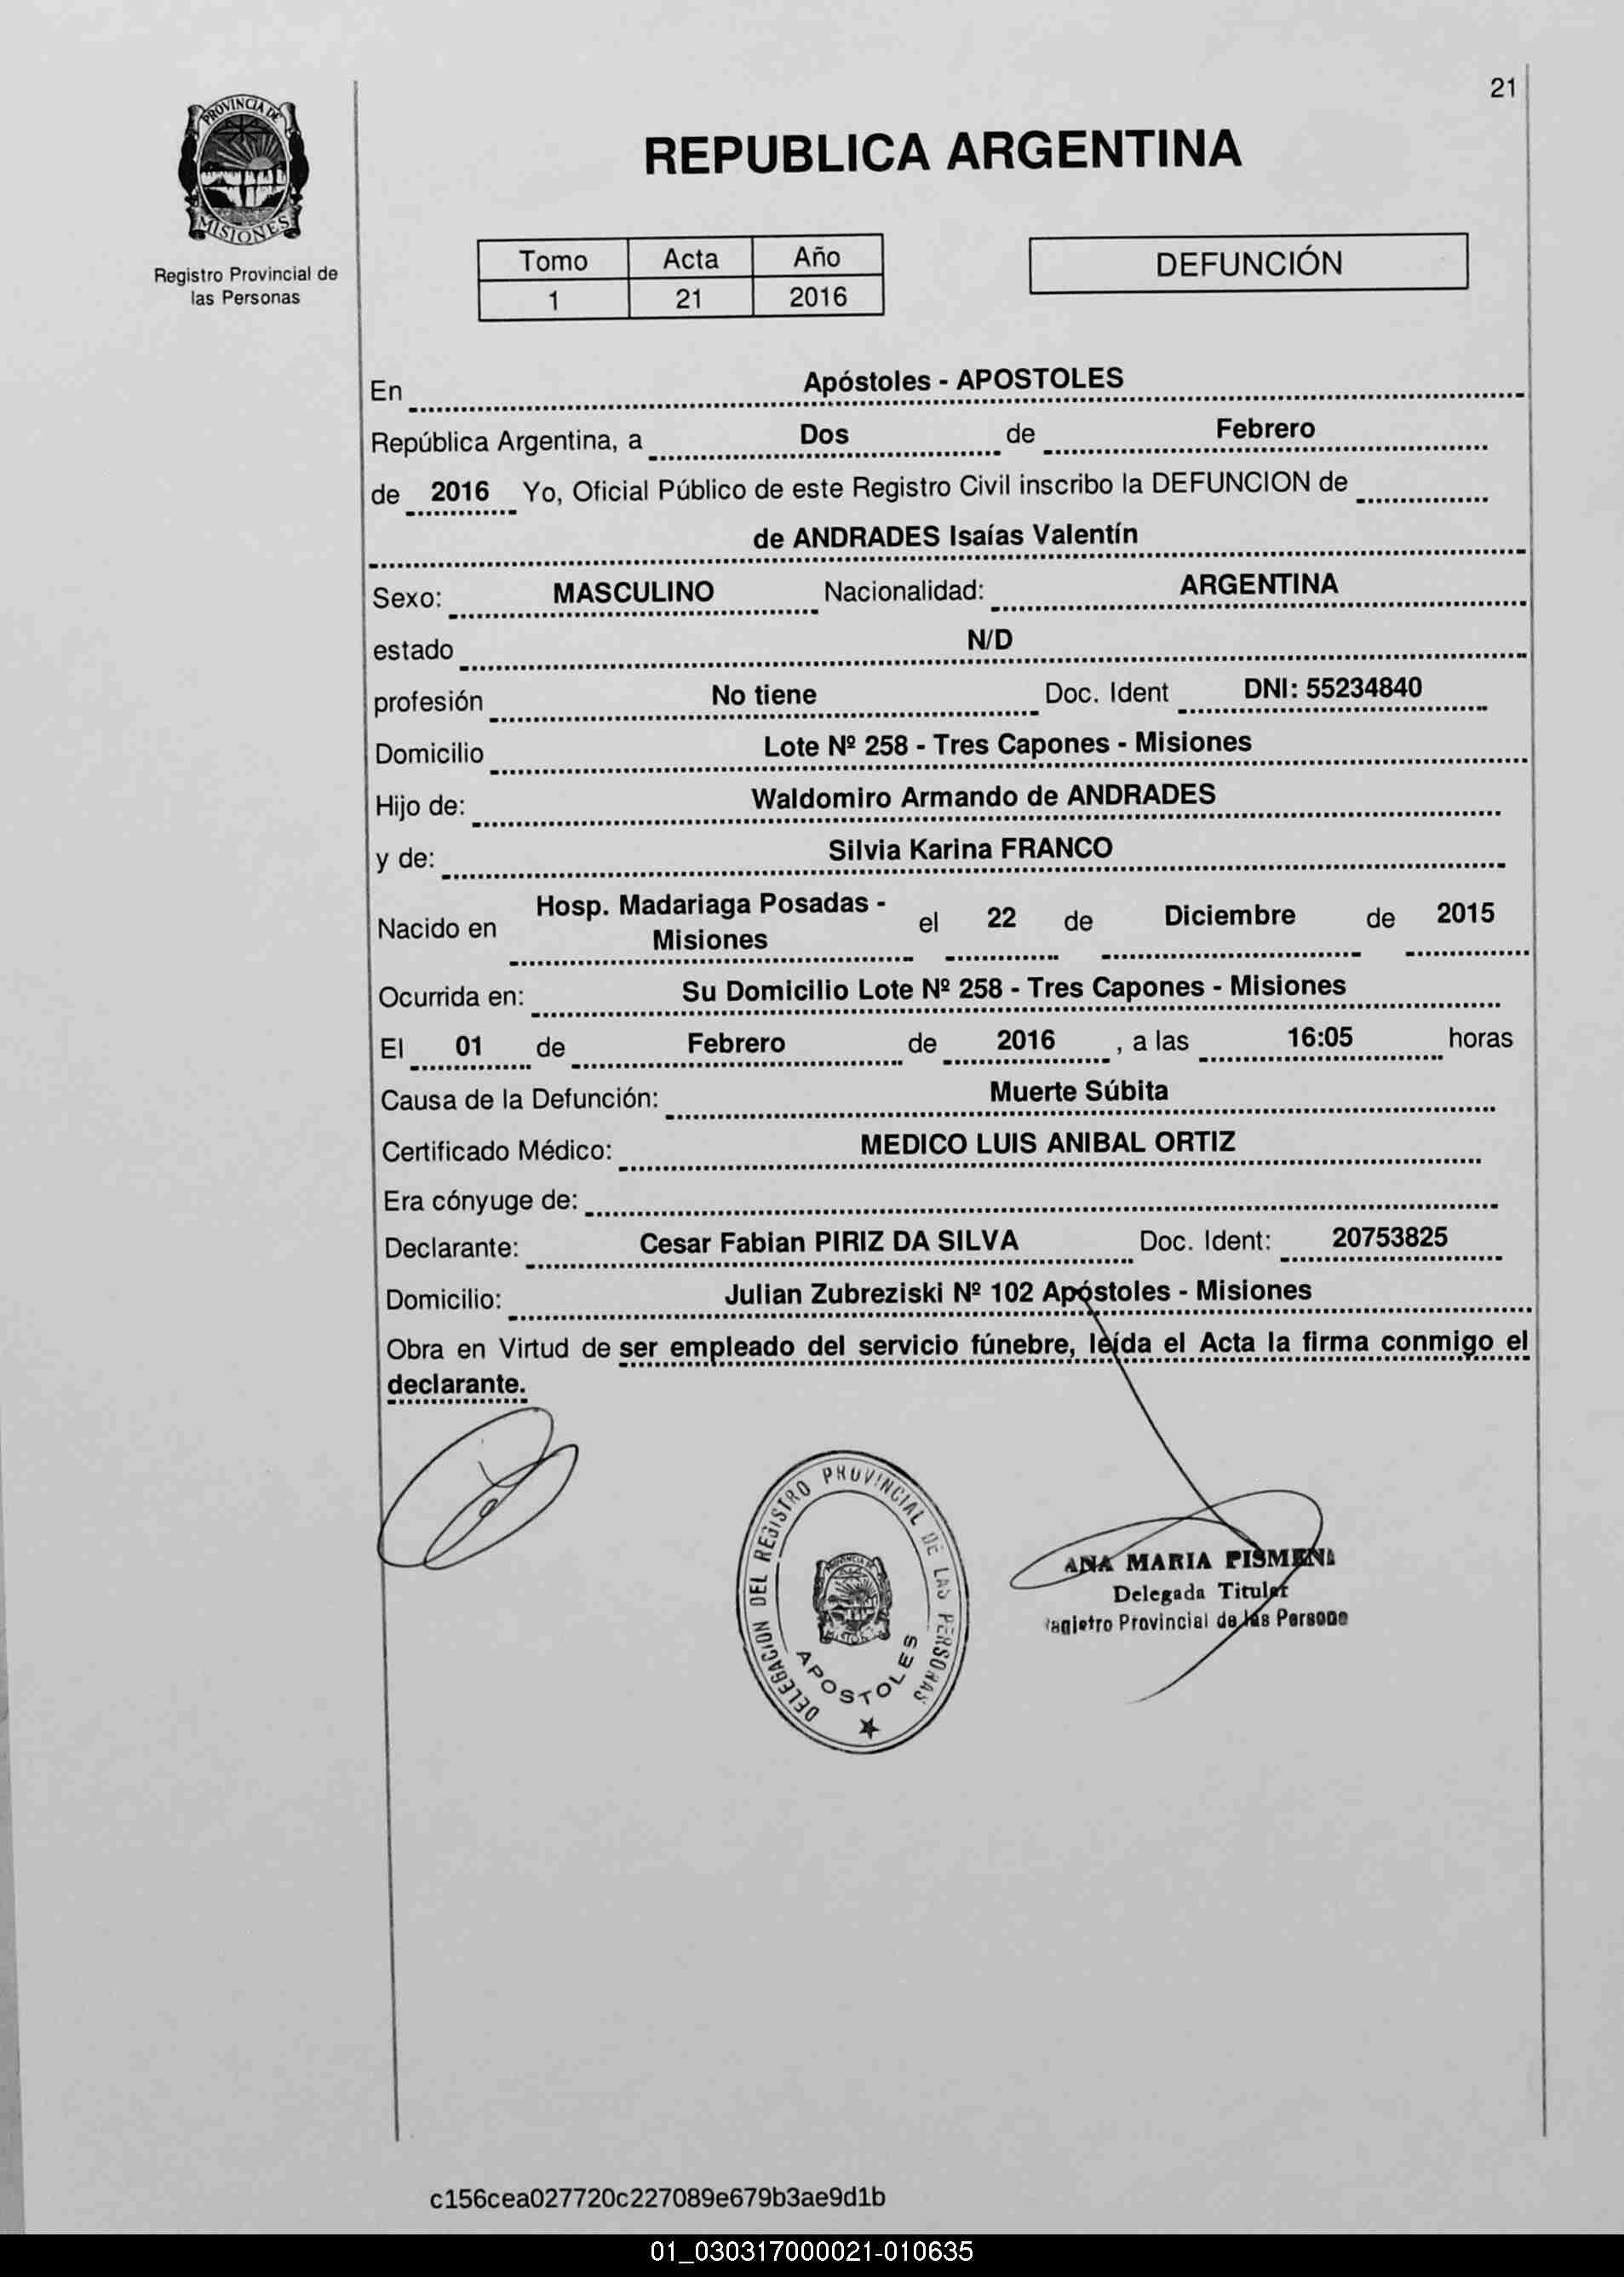 21
PROVINCIA DE
MISIONES
Registro Provincial de
las Personas
REPUBLICA ARGENTINA
Tomo Acta Año
1 21 2016
DEFUNCIÓN
En Apóstoles - APOSTOLES
República Argentina, a Dos de Febrero
de 2016 Yo, Oficial Público de este Registro Civil inscribo la DEFUNCION de
de ANDRADES Isaías Valentín
Sexo: MASCULINO Nacionalidad: ARGENTINA
estado N/D
profesión No tiene Doc. Ident DNI: 55234840
Domicilio Lote Nº 258 - Tres Capones - Misiones
Hijo de: Waldomiro Armando de ANDRADES
y de: Silvia Karina FRANCO
Nacido en Hosp. Madariaga Posadas - el 22 de Diciembre de 2015
Misiones
Ocurrida en: Su Domicilio Lote Nº 258 - Tres Capones - Misiones
El 01 de Febrero de 2016 , a las 16:05 horas
Causa de la Defunción: Muerte Súbita
Certificado Médico: MEDICO LUIS ANIBAL ORTIZ
Era cónyuge de:
Declarante: Cesar Fabian PIRIZ DA SILVA Doc. Ident: 20753825
Domicilio: Julian Zubreziski Nº 102 Apóstoles - Misiones
Obra en Virtud de ser empleado del servicio fúnebre, leída el Acta la firma conmigo el
declarante.
DELEGACION DEL REGISTRO PROVINCIAL DE LAS PERSONAS
APOSTOLES
ANA MARIA
Delegada Titular
Provincial de las
c156cea027720c227089e679b3ae9d1b
01_030317000021-010635